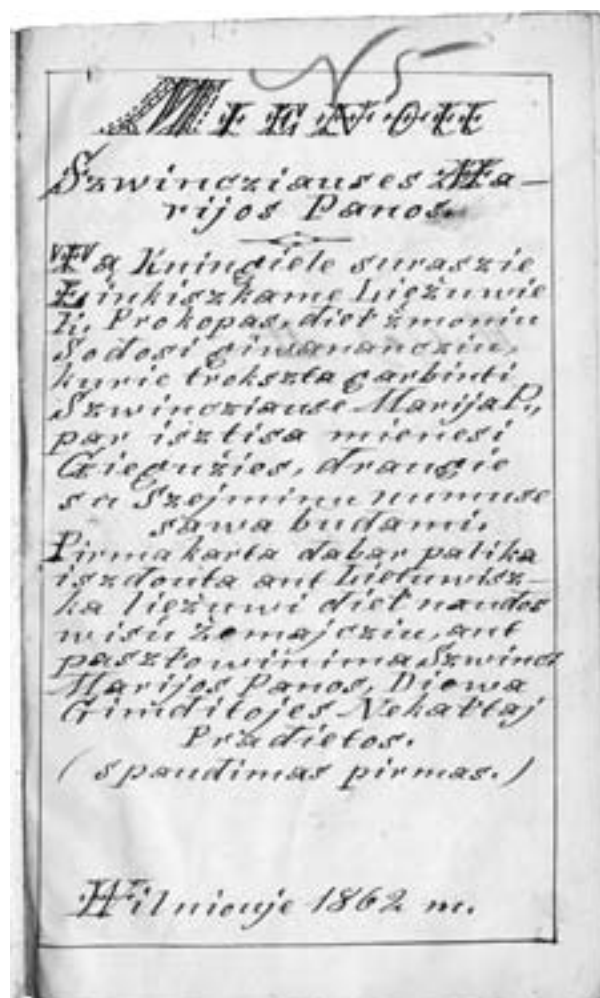 N 5
MIENOU
Szwincziauses Ma-
rijos Panos.
Tą Kningiele suraszie
Linkiszkame Liężuwie
K. Prokopas, dieł žmoniu
Sodosi giwanancziu,
kurie trokszta garbinti
Szwincziause Marija P.,
par isztisa mienesi
Giegužies, draugie
su Szejminu numuse
sawa budami.
Pirma karta dabar palika
iszdouta ant Lietuwisz-
ka liężuwi dieł naudos
wisu Žemajcziu, ant
pasztowinima Szwincz
Marijos Panos, Diewa
Gimditojes Nekałtaj
Pradietos.
(spaudimas pirmas.)
Wilniouje 1862 m.